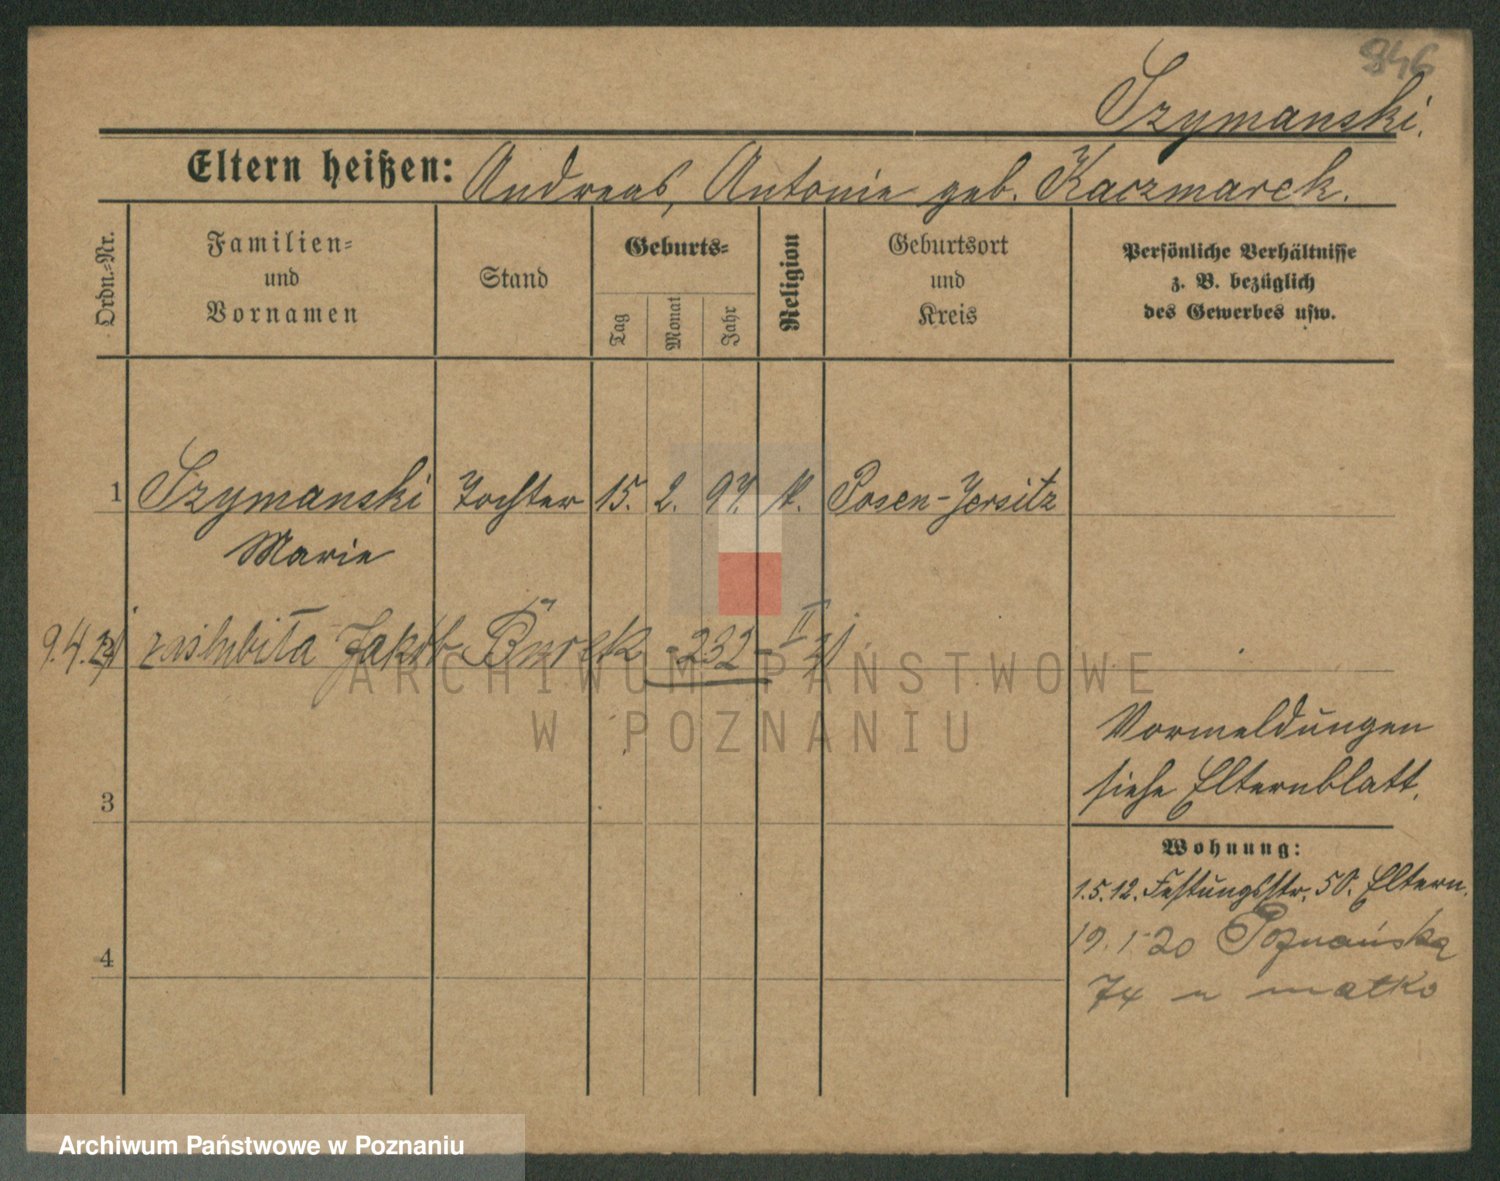 946
Szymanski.
Eltern heißen: Andreas, Antonie geb. Kaczmarek.
Ordn.-Nr.
Familien-
und
Vornamen
Stand
Geburts-
Tag
Monat
Jahr
Religion
Geburtsort
und
Kreis
Persönliche Verhältnisse
z. B. bezüglich
des Gewerbes usw.
1 Szymanski Tochter 15. 2. 97. k. Posen-Jersitz
Marie
9.4.21 zaślubiła Jakób Burek -232-II 21
ARCHIWUM PAŃSTWOWE
W POZNANIU
Vormeldungen
siehe Elternblatt.
3
Wohnung:
1.5.12. Festungsstr. 50. Eltern.
19. 1 20 Poznańska
4
74 u matko
Archiwum Państwowe w Poznaniu